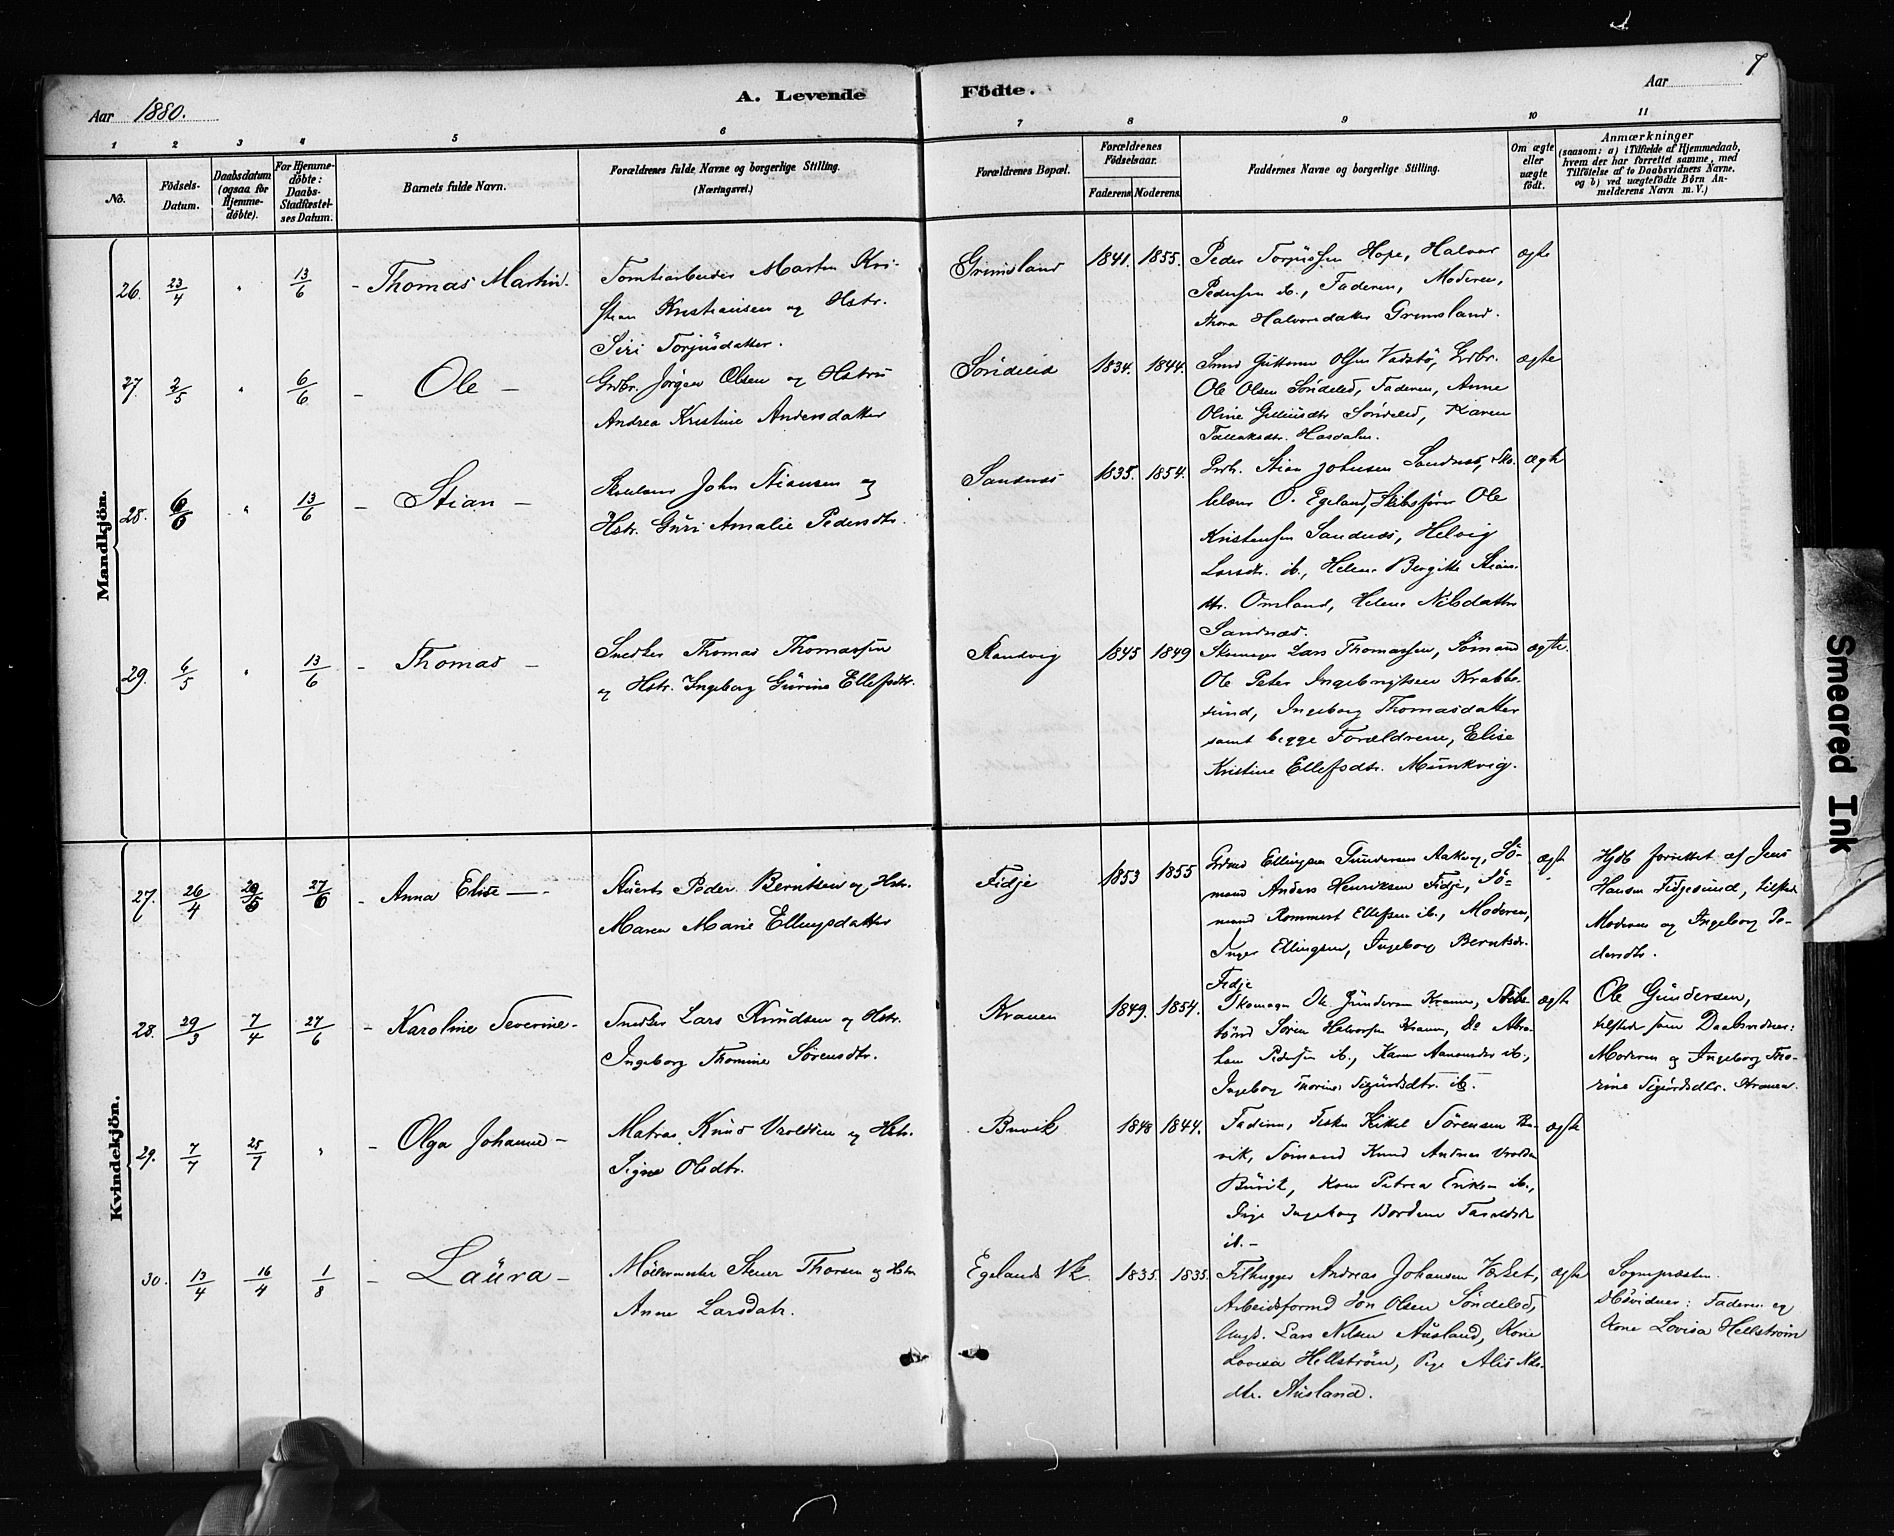 7
Aar 1880.
A. Levende Födte.
Aar
1 2 3 4 5 6 7 8 9 10 11
No.
Födsels-Datum.
Daabsdatum (ogsaa for Hjemmedöbte).
For Hjemmedöbte: Daabs-Stadfæstelses Datum.
Barnets fulde Navn.
Forældrenes fulde Navne og borgerlige Stilling. (Næringsvei.)
Forældrenes Bopæl.
Forældrenes Födselsaar.
Faderens. Moderens.
Faddernes Navne og borgerlige Stilling.
Om ægte eller uægte födt.
Anmærkninger
(saasom: a) i Tilfælde af Hjemmedaab, hvem der har forrettet samme, med Tilföielse af to Daabsvidners Navne. og b) ved uægtefödte Börn Anmelderens Navn m. V.)
Mandkjön.
26. 23/4 " 13/6 - Thomas Martin.
Tomtearbeider Marten Kri-
stian Kristiansen og Hstr.
Siri Torjusdatter.
Grimsland 1841. 1855.
Peder Torjussen Hope, Halvor
Pedersen ib., Faderen, Moderen,
Thora Halvorsdatter Grimsland.
ægte
27. 2/5 " 6/6 - Ole -
Grdbr. Jörgen Olsen og Hstru
Andrea Kristine Andersdatter
Söndeled 1834. 1844.
Smed Guttorm Olsen Vadstö, Grdbr.
Ole Olsen Söndeled, Faderen, Anne
Oline Söndeled, Karen
Tallaksdtr. Hasdalen.
ægte
28. 13/6 - Stian -
Skolelærer John Stiansen og
Hstr. Guri Amalie Pedersdtr.
Sandnæs 1835. 1854.
Grdbr. Stian Johnsen Sandnæs, Sko-
lelærer O. Egeland, Skibsförer Ole
Kristensen Sandnæs, Helvig
Larsdtr. ib., Helene Bergitte Stians-
dtr. Omland, Helene Nilsdatter
Sandnæs.
ægte
29. 6/5 " 13/6 - Thomas -
Snedker Thomas Thomassen
og Hstr. Ingeborg Gurine Ellefsdtr.
Randvig 1845 1849
Skomager Lars Thomassen, Sömand
Ole Peter Ingebrigtsen Krabbe-
sund, Ingeborg Thomasdatter
samt begge Forældrene, Elise
Kristine Ellefsdtr. Munkvig.
ægte.
Kvindekjön.
27. 26/4 27/6 - Anna Elise -
Peder Berntsen og Hstr.
Maren Marie Ellingsdatter
Fidje 1853 1855
Ellingsen Gundersen Aakvåg, Sö-
mand Anders Henriksen Fidje, Sö-
mand Rommert Ellefsen ib., Moderen,
Inger Ellingsen, Ingeborg Berntsdr.
Fidje
ægte
Hjdb forrettet af Jens
Hansen Fidjesund, tilstede
Moderen og Ingeborg Pe-
dersdtr.
28. 29/3 7/4 27/6 - Karoline Severine -
Snedker Lars Knudsen og Hstr.
Ingeborg Thomine Sörensdtr.
Kranen 1849. 1854.
Skomager Ole Gundersen Kranen, Skibs-
tömd Sören Halvorsen Kranen, Do Abra-
ham Pedersen ib., Karen Aanonsdtr ib.,
Ingeborg Thorine Sigurdsdtr. ib.
ægte
Ole Gundersen,
tilstede som Daabsvidner:
Moderen og Ingeborg Tho-
rine Sigurdsdtr. Kranen.
29. 7/7 25/7 " - Olga Johanne -
Matros Knud Vroldsen og Hstr.
Signe Olsdtr.
Buvik 1848 1844.
Faderen, Fisker Kittel Sörensen Bu-
vik, Sömand Knud Andreas
Buvik, Kone Petrea Eriksen ib.,
Pige Ingeborg
ib. -
ægte
30. 13/4 16/4 1/8 - Laura -
Möllermester Stener Thorsen og Hstr
Anne Larsdatr.
Egelands Vk. 1835. 1835.
Filhugger Andreas Johansen Værket,
Arbeidsformd Jon Olsen Söndeled,
Ungk. Lars Nilsen Ausland, Kone
Lovisa Hellström, Pige Alis Nils-
dtr. Ausland.
ægte
Sognepræsten.
Dbsvidner: Faderen og
Kone Lovisa Hellström
Smeared Ink